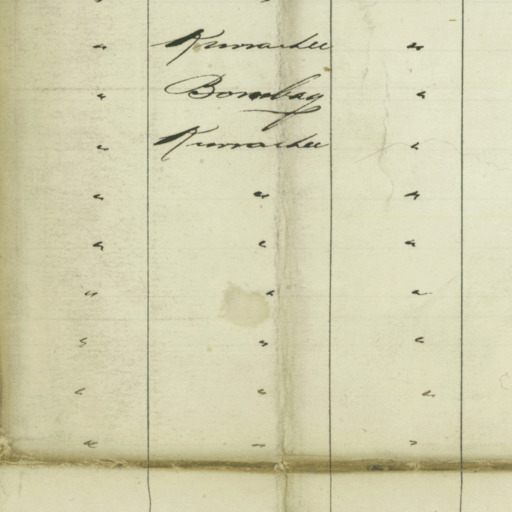 " Kurrachee "
" Bombay "
" Kurrachee "
" " "
" " "
" " "
" " "
" " "
" " "